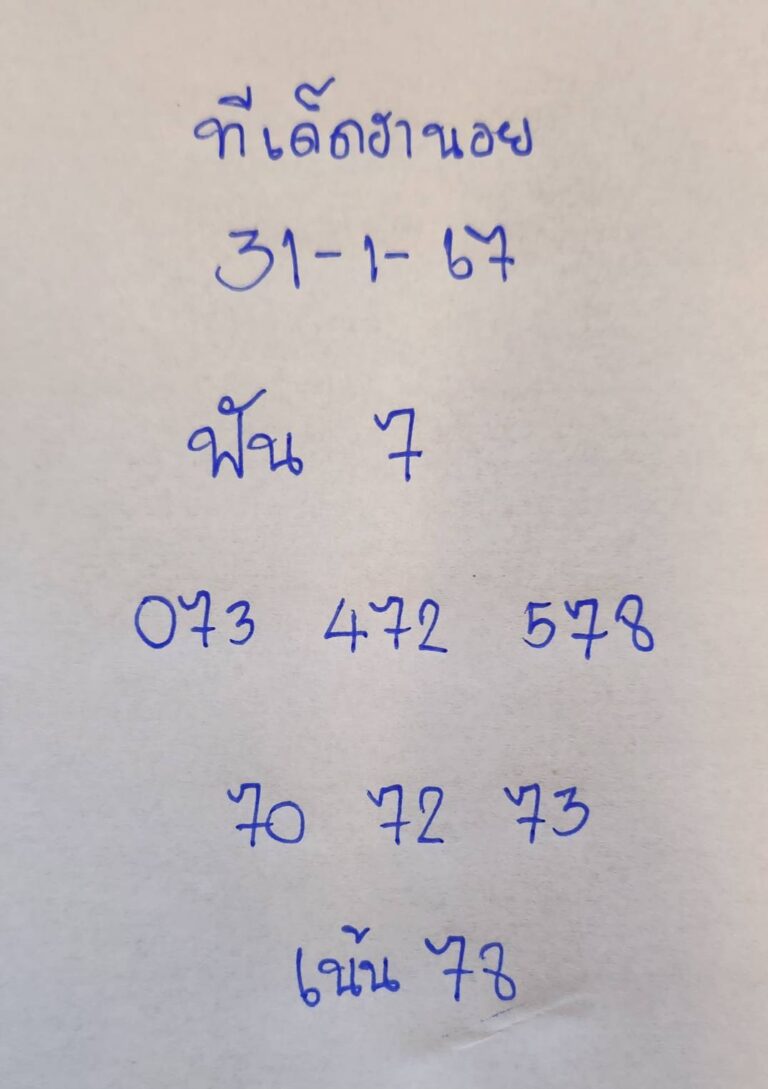 ทีเด็ดฮานอย
31-1-67
ฟัน 7
073 472 578
70 72 73
เน้น 78